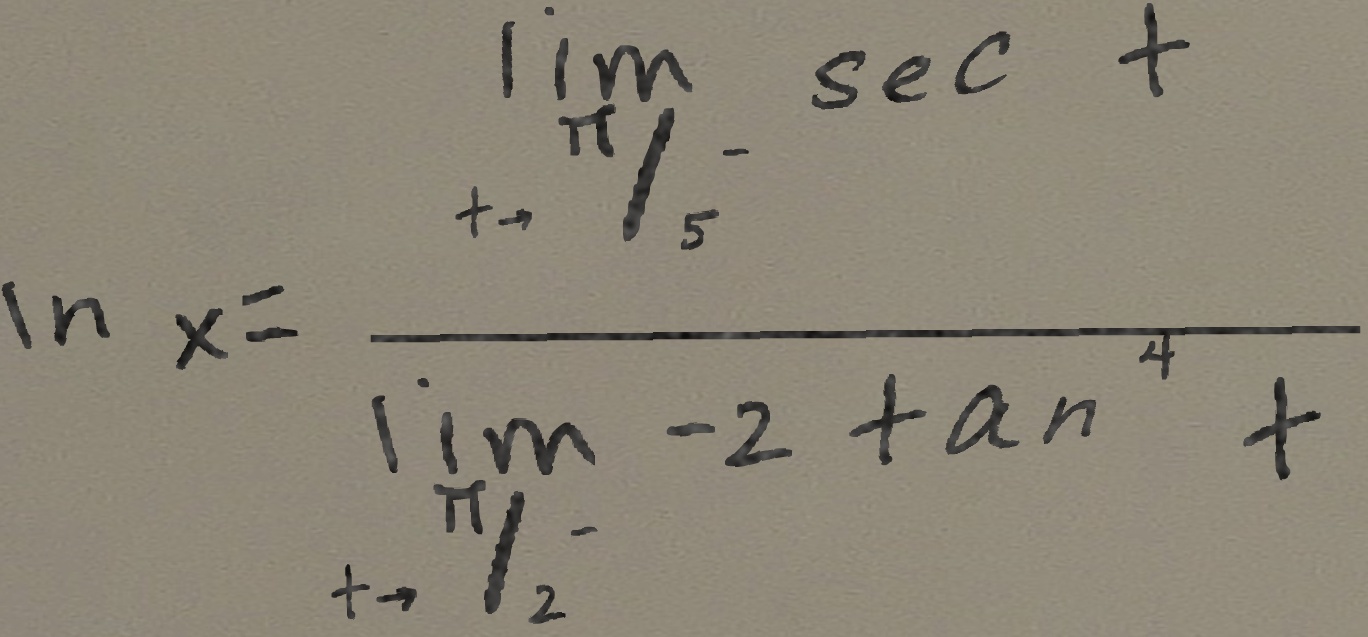 ln x = \frac{\lim_{t \to \pi/5^-} \sec t}{\lim_{t \to \pi/2^-} -2 \tan^4 t}